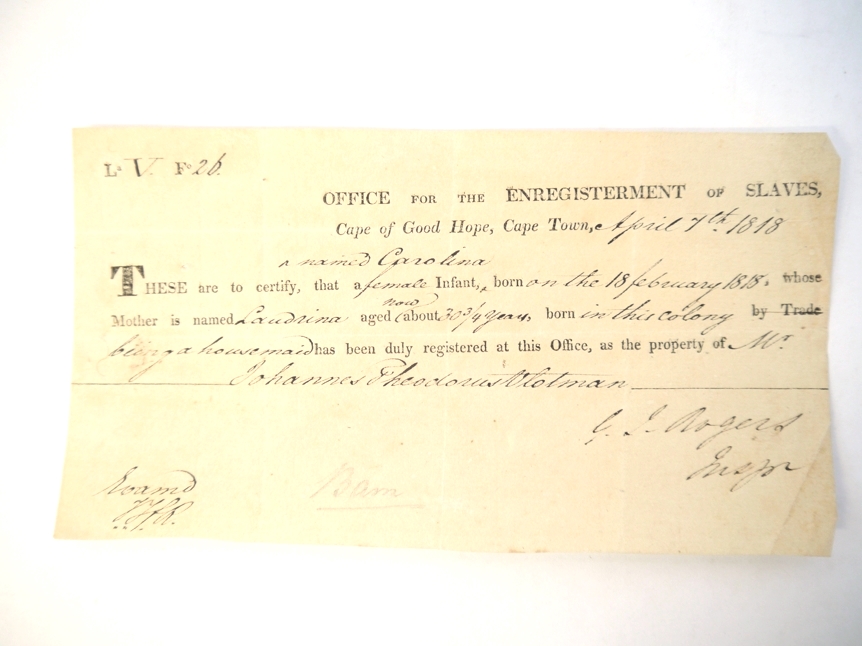 Lᵃ V. Fᵒ 26.
OFFICE FOR THE ENREGISTERMENT OF SLAVES,
Cape of Good Hope, Cape Town, April 7th 1818
named Carolina
THESE are to certify, that a female Infant, born on the 18 february 1818, whose
now
Mother is named Laudrina aged (about 30 3/4 years, born in this colony by Trade
being a housemaid has been duly registered at this Office, as the property of Mr
Johannes Theodorus Vlotman
G. J. Rogers
Inspr
Examd
Bam